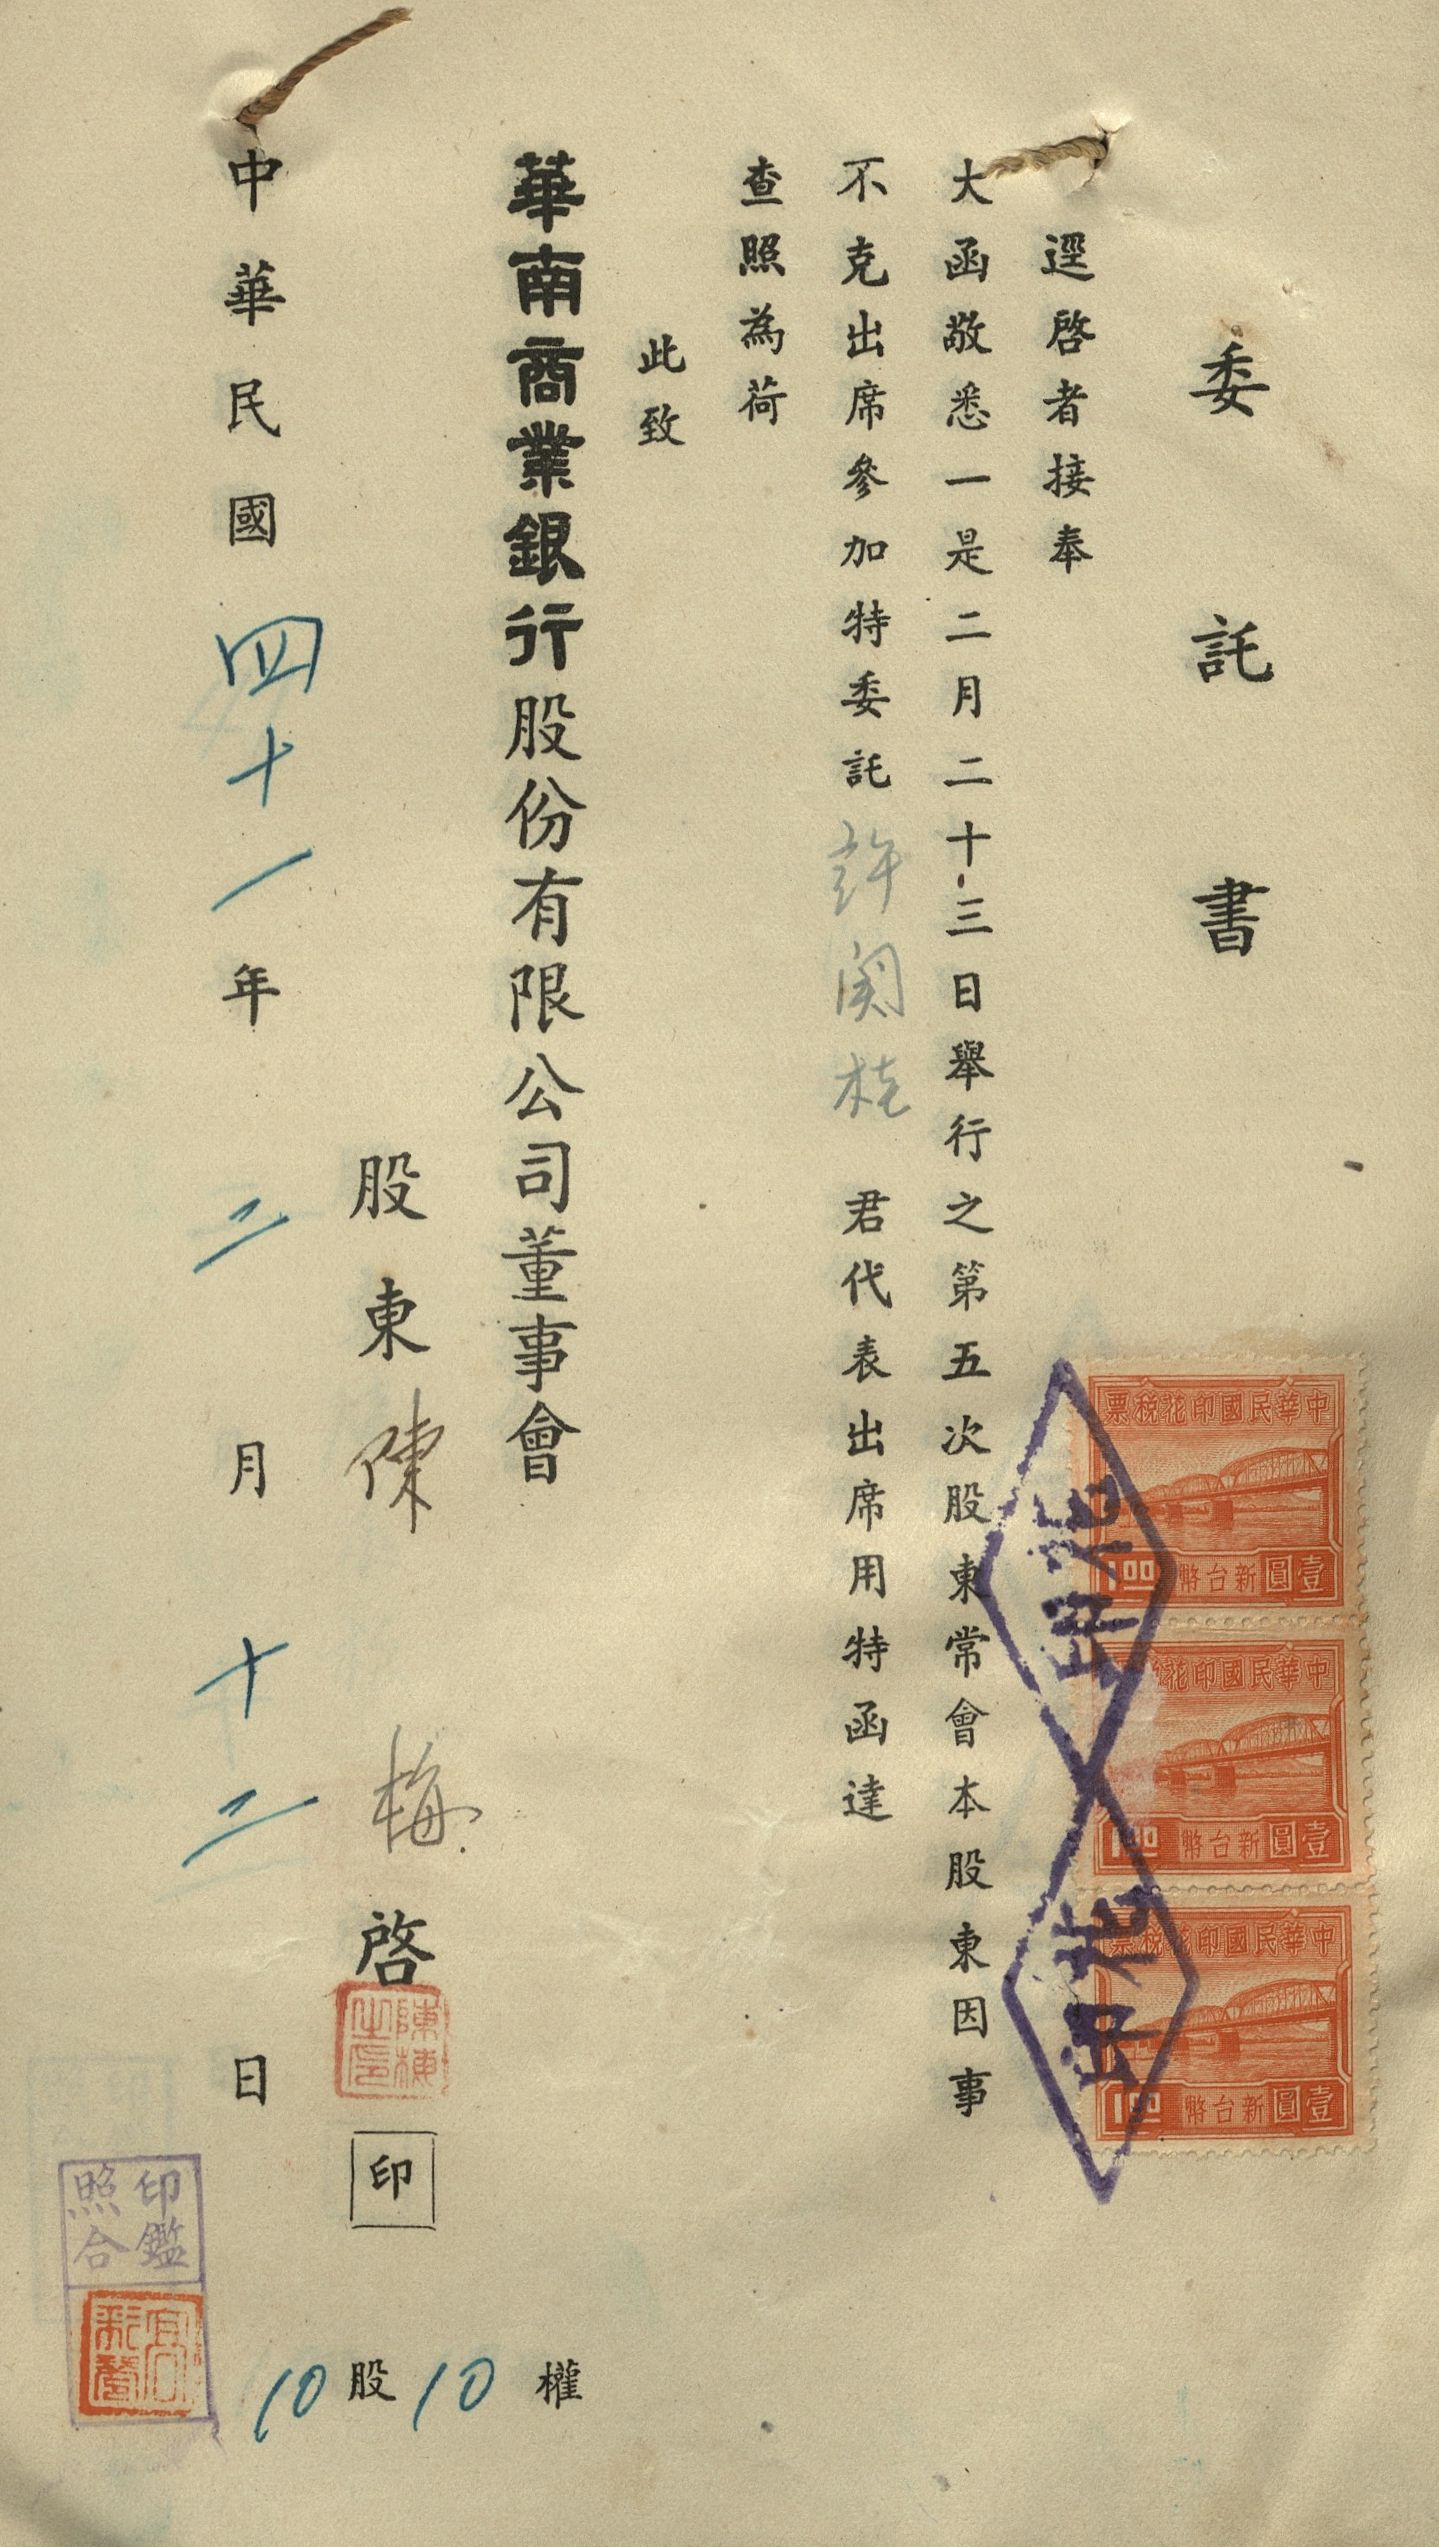 委託書
逕啓者接奉
大函敬悉一是二月二十三日舉行之第五次股東常會本股東因事
不克出席參加特委託許 桂 君代表出席用特函達
查照為荷
此致
華南商業銀行股份有限公司董事會
股東陳梅啓 印
中華民國四十一年二月十二日
10股10權
中華民國印花稅票
壹圓新台幣1.00
中華民國印花稅票
壹圓新台幣1.00
中華民國印花稅票
壹圓新台幣1.00
印花
印花
陳梅之印
印鑑照合